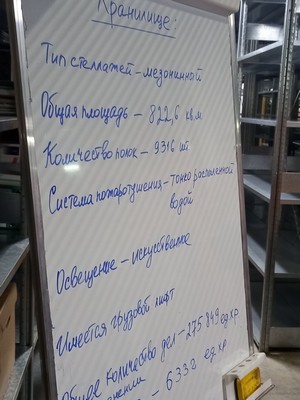 Хранилище:
Тип стеллажей – мезонинный
Общая площадь – 822,6 кв.м
Количество полок – 9316 шт
Система пожаротушения – тонко распыленной
водой
Освещение – искуственное
Имеется грузовой лифт
Общее количество дел – 275849 ед.хр.
– 6332 ед.хр